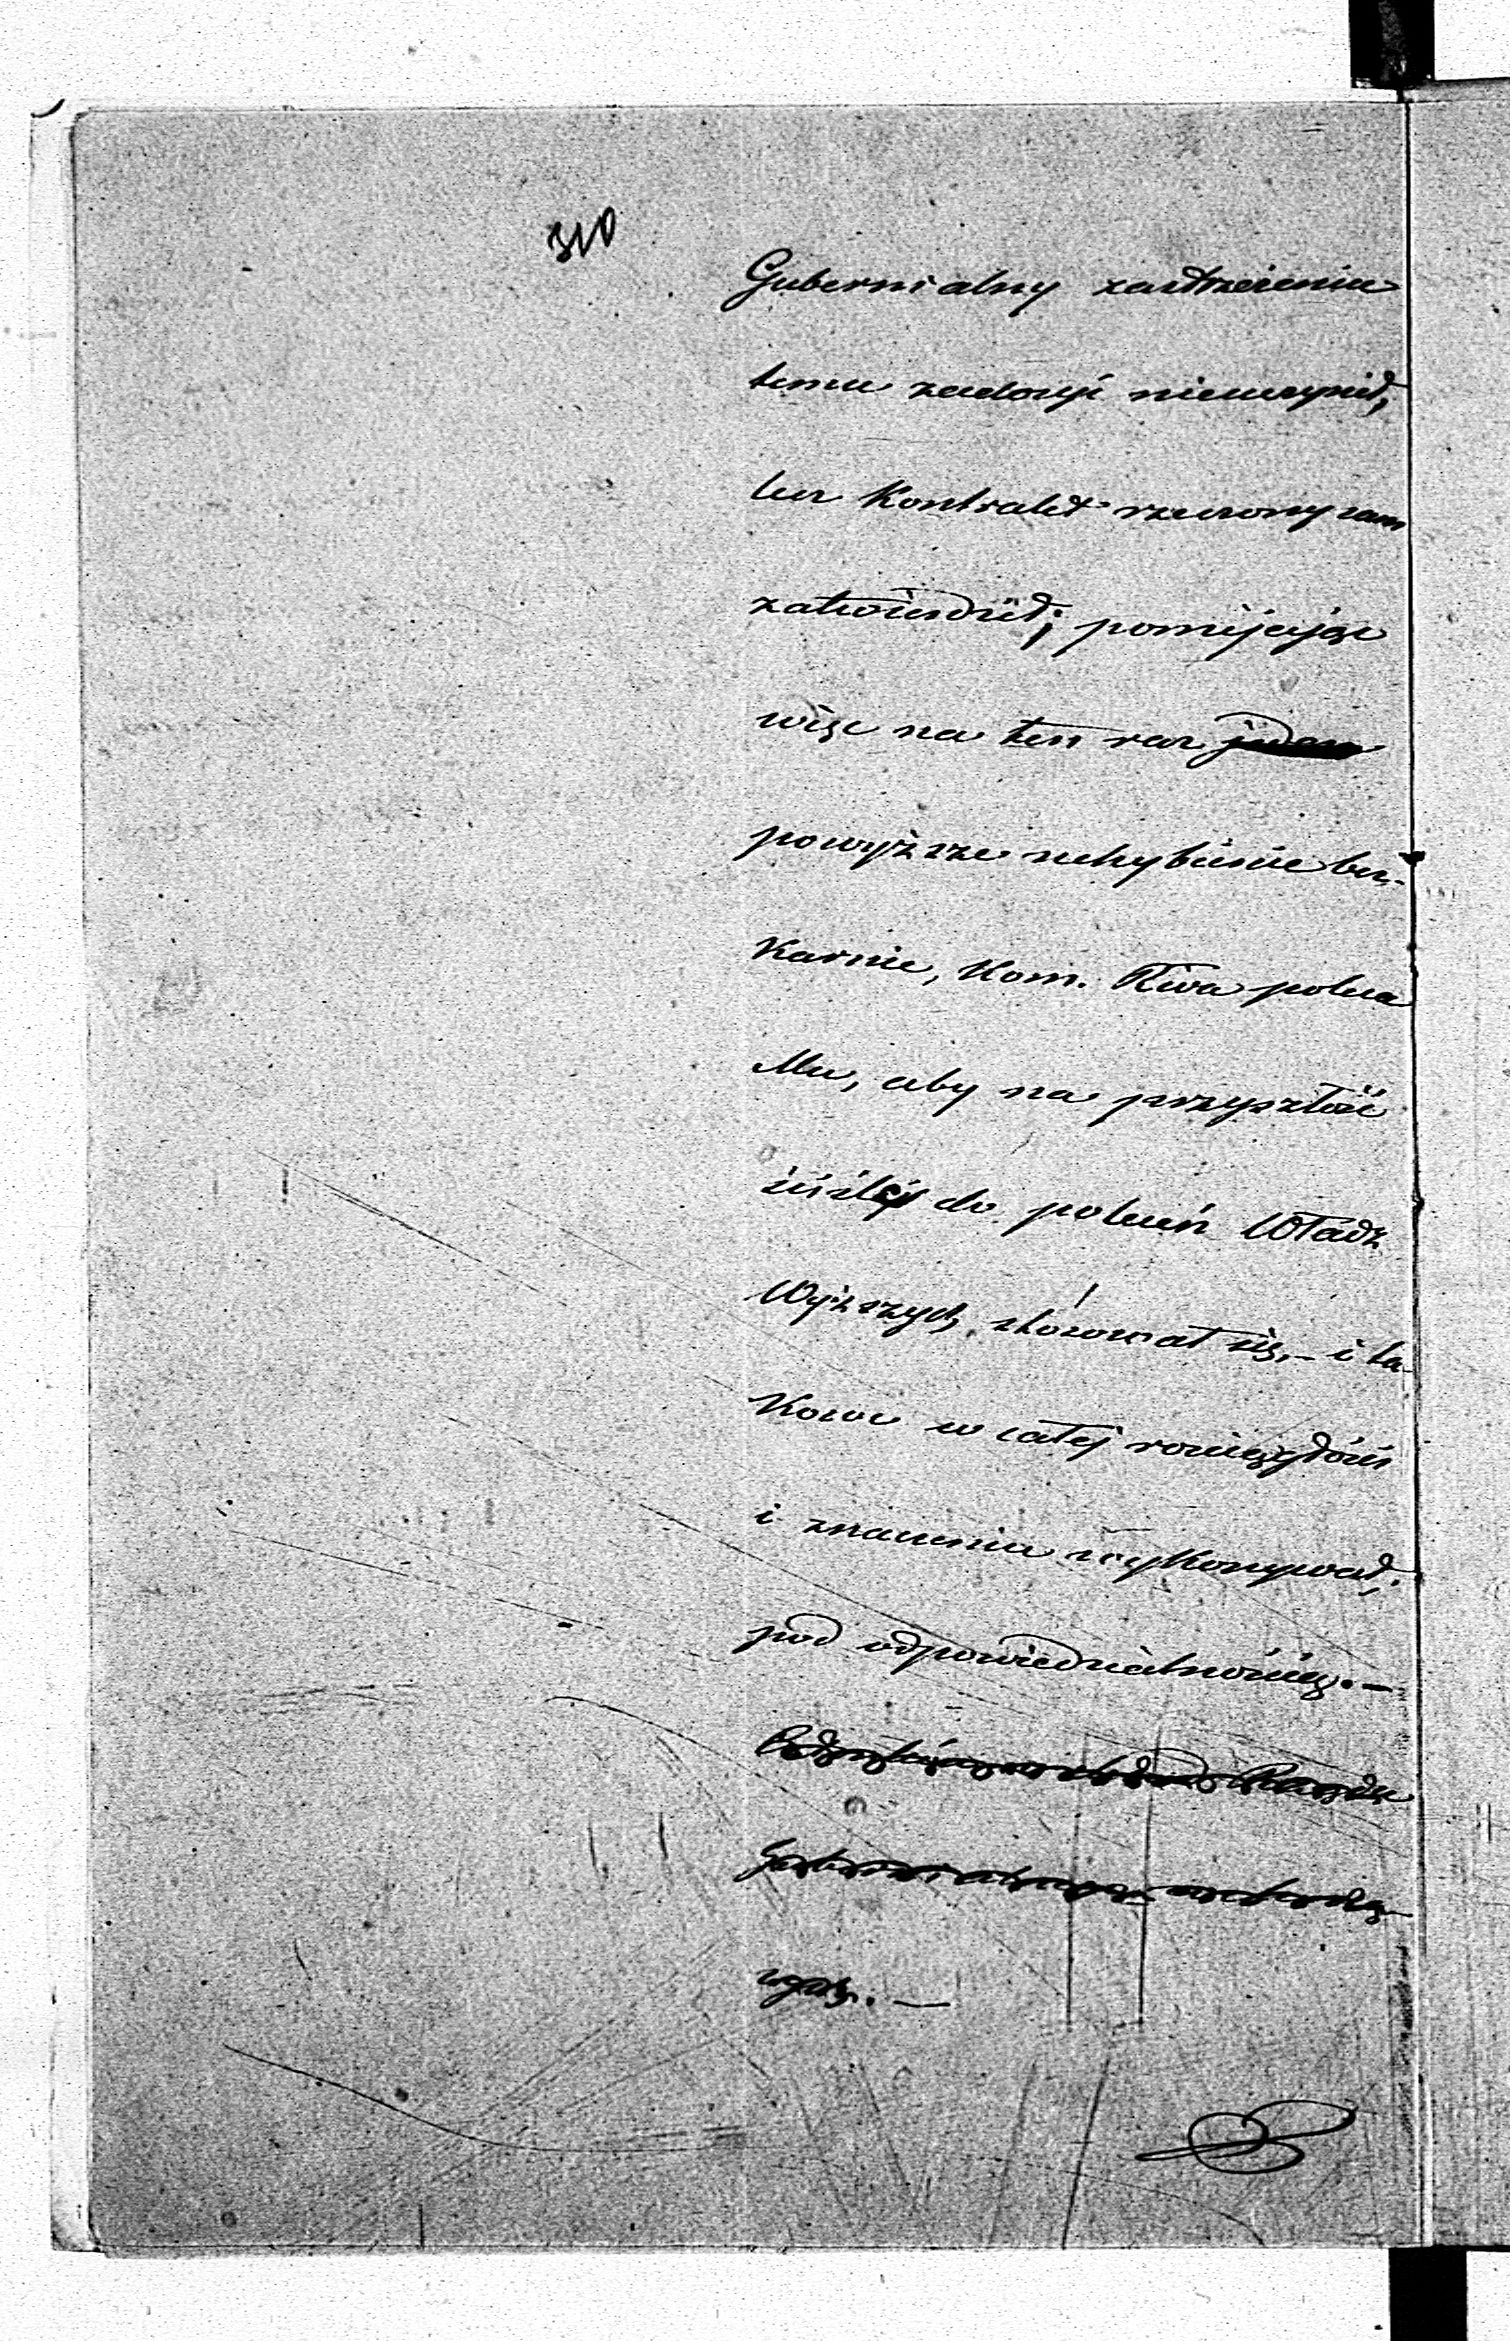 310
Gubernialny zastrzeżeniu
temu zadosyć nieuczynił,
lecz Kontrakt rzeczony sam
zatwierdził; pomijając
więc na ten raz jeden
powyższe uchybienie bez-
karnie, Kom. Rwa poleca
Mu, aby na przyszłość
ściślej do poleceń Władz
Wyższych stósował się, – i ta-
kowe w całej rozciągłości
i znaczeniu wykonywał,
pod odpowiedzialnością. –